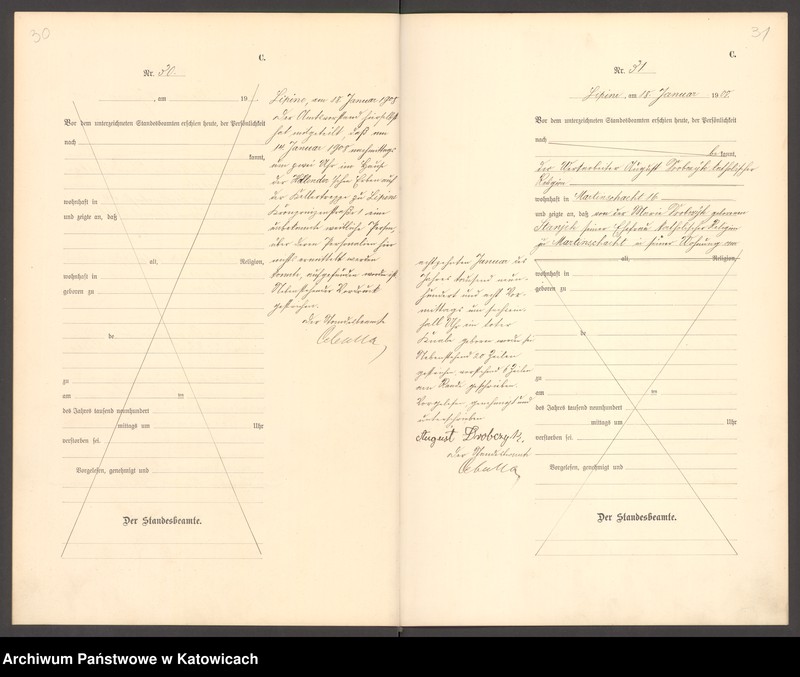 30
C.
Nr. 30.
, am 19
Vor dem unterzeichneten Standesbeamten erschien heute, der Persönlichkeit
nach
kannt,
wohnhaft in
und zeigte an, daß
alt, Religion,
wohnhaft in
geboren zu
de
zu
am
des Jahres tausend neunhundert
mittags um Uhr
verstorben sei.
Vorgelesen, genehmigt und
Der Standesbeamte.
Lipine, am 18. Januar 1908
Der Amtsvorstand hierselbst
hat mitgeteilt, daß am
14. Januar 1908 nachmittags
um zwei Uhr im Hause
der
der Kellertreppe zu Lipine
Kronprinzenstraße 1 eine
unbekannte weibliche Person,
über deren Personalien hier
nichts ermittelt werden
konnte, aufgefunden worden ist
Nebenstehender Vordruck
gestrichen.
Der Standesbeamte
Cebulla
31
C.
Nr. 31
Lipine, am 18. Januar 1908.
Vor dem unterzeichneten Standesbeamten erschien heute, der Persönlichkeit
nach
be kannt,
der August katholischer
Religion
wohnhaft in Martinschacht 16
und zeigte an, daß von der Marie geborenen
seiner Ehefrau katholischer Religion
zu Martinschacht in seiner Wohnung am
alt, Religion,
wohnhaft in
geboren zu
de
zu
am
des Jahres tausend neunhundert
mittags um Uhr
verstorben sei.
Vorgelesen, genehmigt und
Der Standesbeamte.
achtzehnten Januar des
Jahres tausend neun-
hundert und acht Vor-
mittags um
halb Uhr ein toter
Knabe geboren worden sei
Nebenstehend 20 Zeilen
gestrichen, vorstehend 6 Zeilen
am Rande geschrieben.
Vorgelesen, genehmigt und
unterschrieben
August Drobczyk.
Der Standesbeamte
Cebulla
Archiwum Państwowe w Katowicach